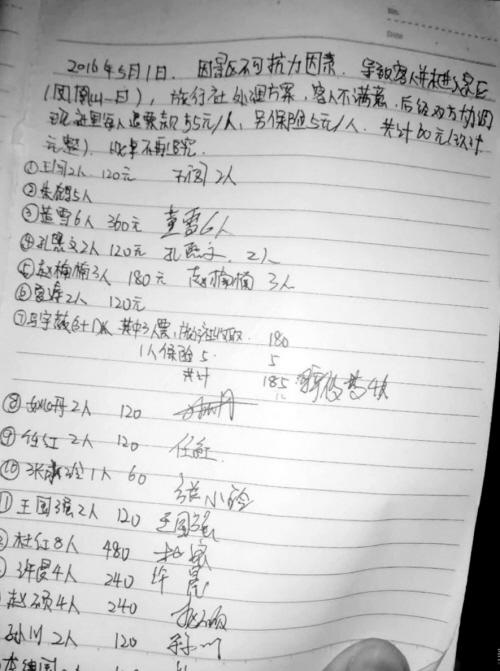 2016年5月1日. 因景区不可抗力因素. 导致客人并未进入景区
(凤凰山一日), 旅行社处理方案, 客人不满意. 后经双方协调
现社里每人退票款55元/人, 另保险5元/人. 共计60元/人
元整). 此事不再追究.
①王闯2人 120元 王闯 2人
②朱鸽5人
③董雪6人 360元 董雪6人
④孔思文2人 120元 孔思文. 2人
⑤赵楠楠3人 180元 赵楠楠 3人
⑥ 2人 120元
⑦马宇薇 其中3人票, 旅行社收取. 180
1人保险5. 5
共计 185 4人
⑧ 2人 120
⑨任红2人 120 任红
⑩张 1人 60 张小玲
⑪王国强2人 120 王国强
杜红8人 480
许晨4人 240 许晨
赵硕4人 240 赵硕
孙川2人 120 孙川